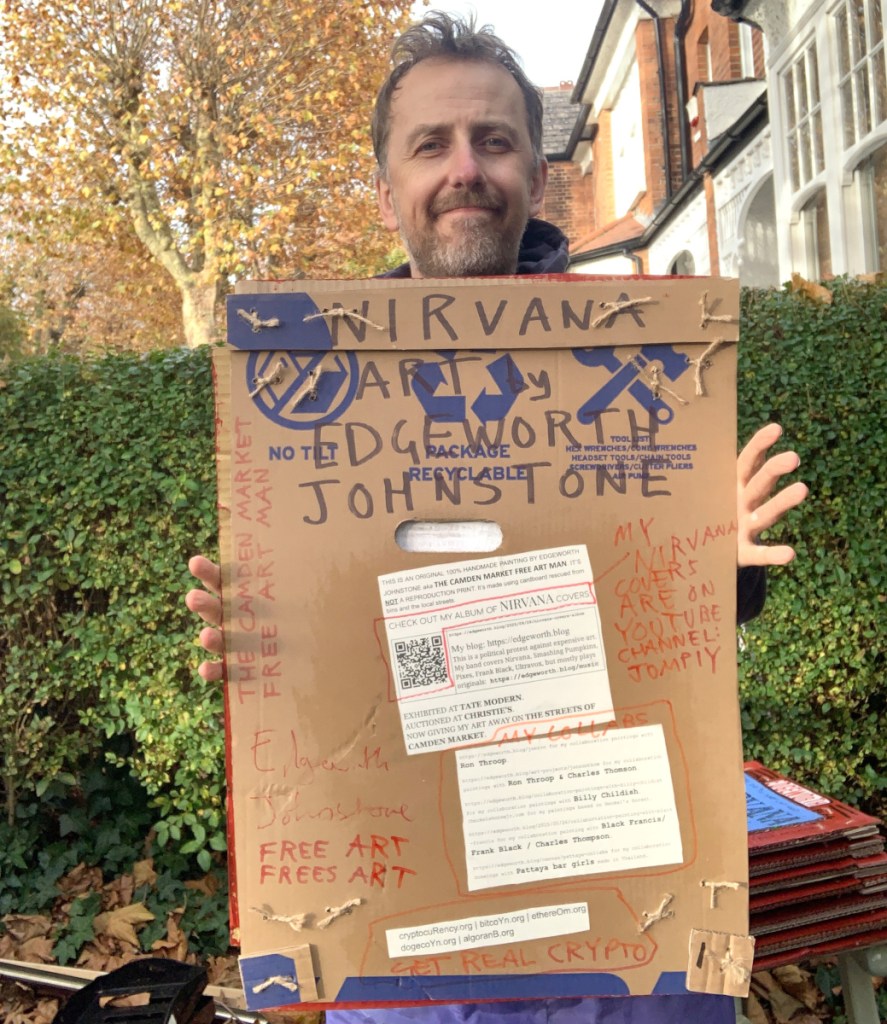 NIRVANA
ART by
EDGEWORTH
JOHNSTONE
NO TILT
PACKAGE
RECYCLABLE
TOOL LIST:
HEX WRENCHES/CONE WRENCHES
HEADSET TOOLS/CHAIN TOOLS
SCREWDRIVERS/CUTTER PLIERS
AIR PUMP
THE CAMDEN MARKET
FREE ART MAN
THIS IS AN ORIGINAL 100% HANDMADE PAINTING BY EDGEWORTH
JOHNSTONE aka THE CAMDEN MARKET FREE ART MAN. IT'S
NOT A REPRODUCTION PRINT. It's made using cardboard rescued from
bins and the local streets.
CHECK OUT MY ALBUM OF NIRVANA COVERS
My blog: https://edgeworth.blog
This is a political protest against expensive art.
My band covers Nirvana, Smashing Pumpkins,
Pixes, Frank Black, Ultravox, but mostly plays
originals: https://edgeworth.blog/music
EXHIBITED AT TATE MODERN.
AUCTIONED AT CHRISTIE'S.
NOW GIVING MY ART AWAY ON THE STREETS OF
CAMDEN MARKET.
MY
NIRVANA
COVERS
ARE ON
YOUTUBE
CHANNEL:
JOMPIY
MY COLLABS
Ron Throop
paintings with Ron Throop & Charles Thomson
for my collaboration paintings with Billy Childish
for my collaboration painting with Black Francis/
Frank Black / Charles Thompson
for my collaboration
drawings with Pattaya bar girls made in Thailand.
Johnstone
FREE ART
FREES ART
cryptocuRency.org | bitcoYn.org | ethereOm.org
dogecoYn.org | algoranB.org
GET REAL CRYPTO